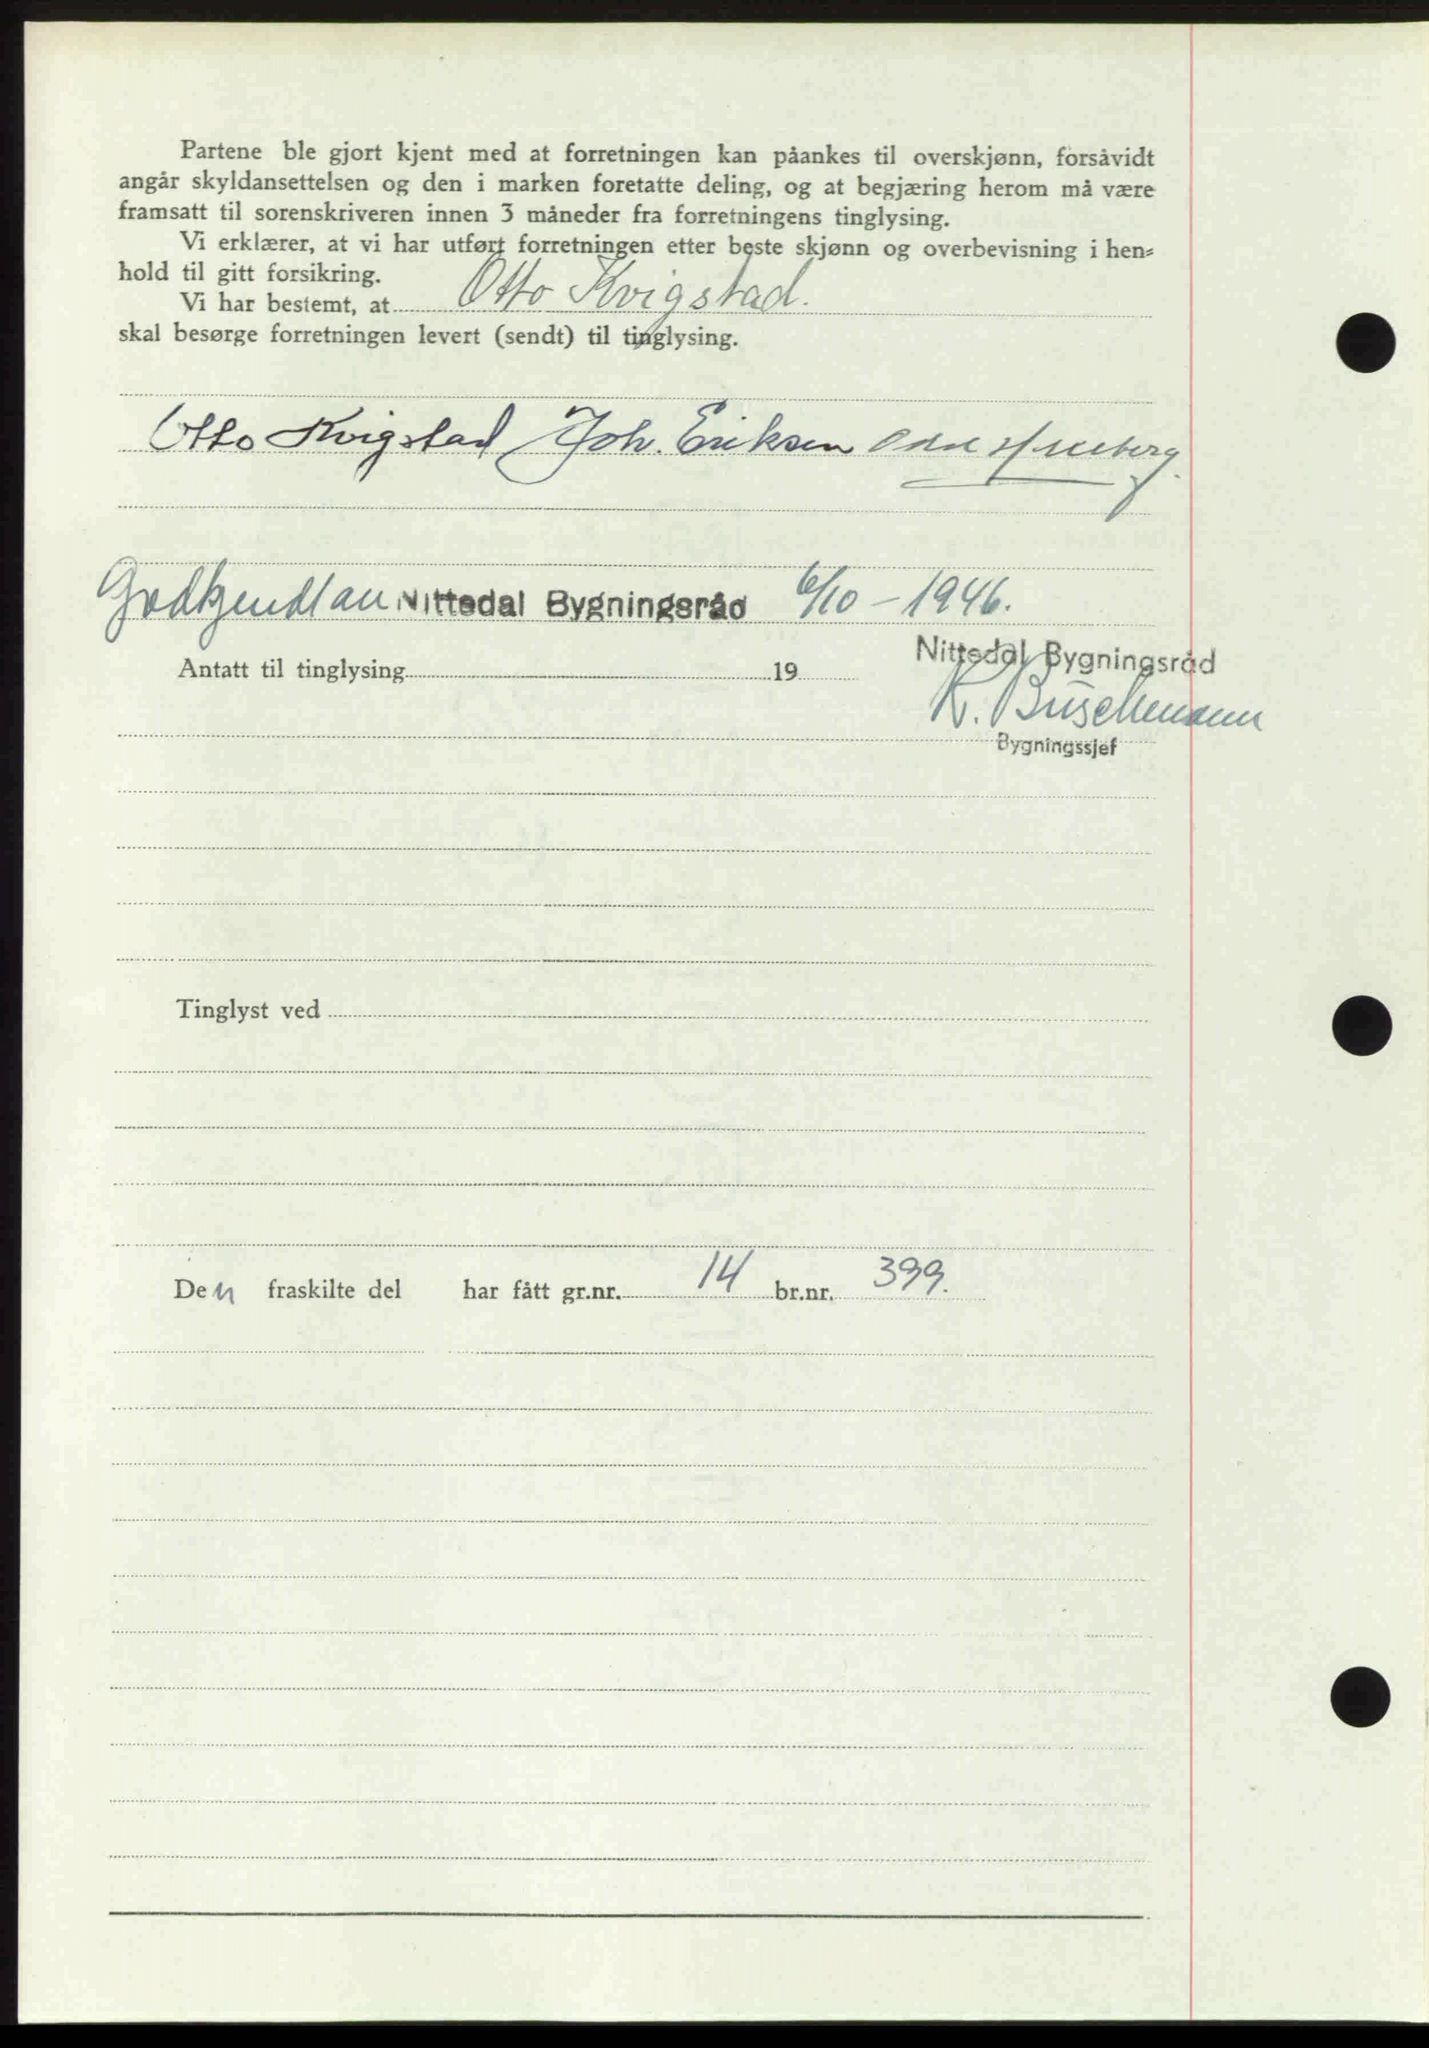 Partene ble gjort kjent med at forretningen kan påankes til overskjønn, forsåvidt
angår skyldansettelsen og den i marken foretatte deling, og at begjæring herom må være
framsatt til sorenskriveren innen 3 måneder fra forretningens tinglysing.
Vi erklærer, at vi har utført forretningen etter beste skjønn og overbevisning i hen-
hold til gitt forsikring.
Vi har bestemt, at Otto Kvigstad.
skal besørge forretningen levert (sendt) til tinglysing.
Otto Kvigstad Joh. Eriksen
Godkjendt av Nittedal Bygningsråd 6/10 - 1946.
Nittedal Bygningsråd
Antatt til tinglysing 19
K. Buschmann
Bygningssjef
Tinglyst ved
Den fraskilte del har fått gr.nr. 14 br.nr. 399.